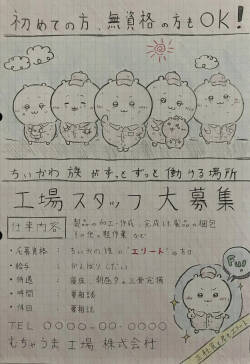 初めての方、無資格の方もOK!
ちいかわ族がずっとずっと働ける場所
工場スタッフ大募集
仕事内容 製品の加工・作成、完成した製品の梱包
その他軽作業 など
・応募資格 : ちいかわ族の"エリート"の方
・給与 : がんばりしだい
・待遇 : 寮
・時間 : 要相談
・休日 : 要相談
TEL 0000-00-0000
むちゃうま工場 株式会社